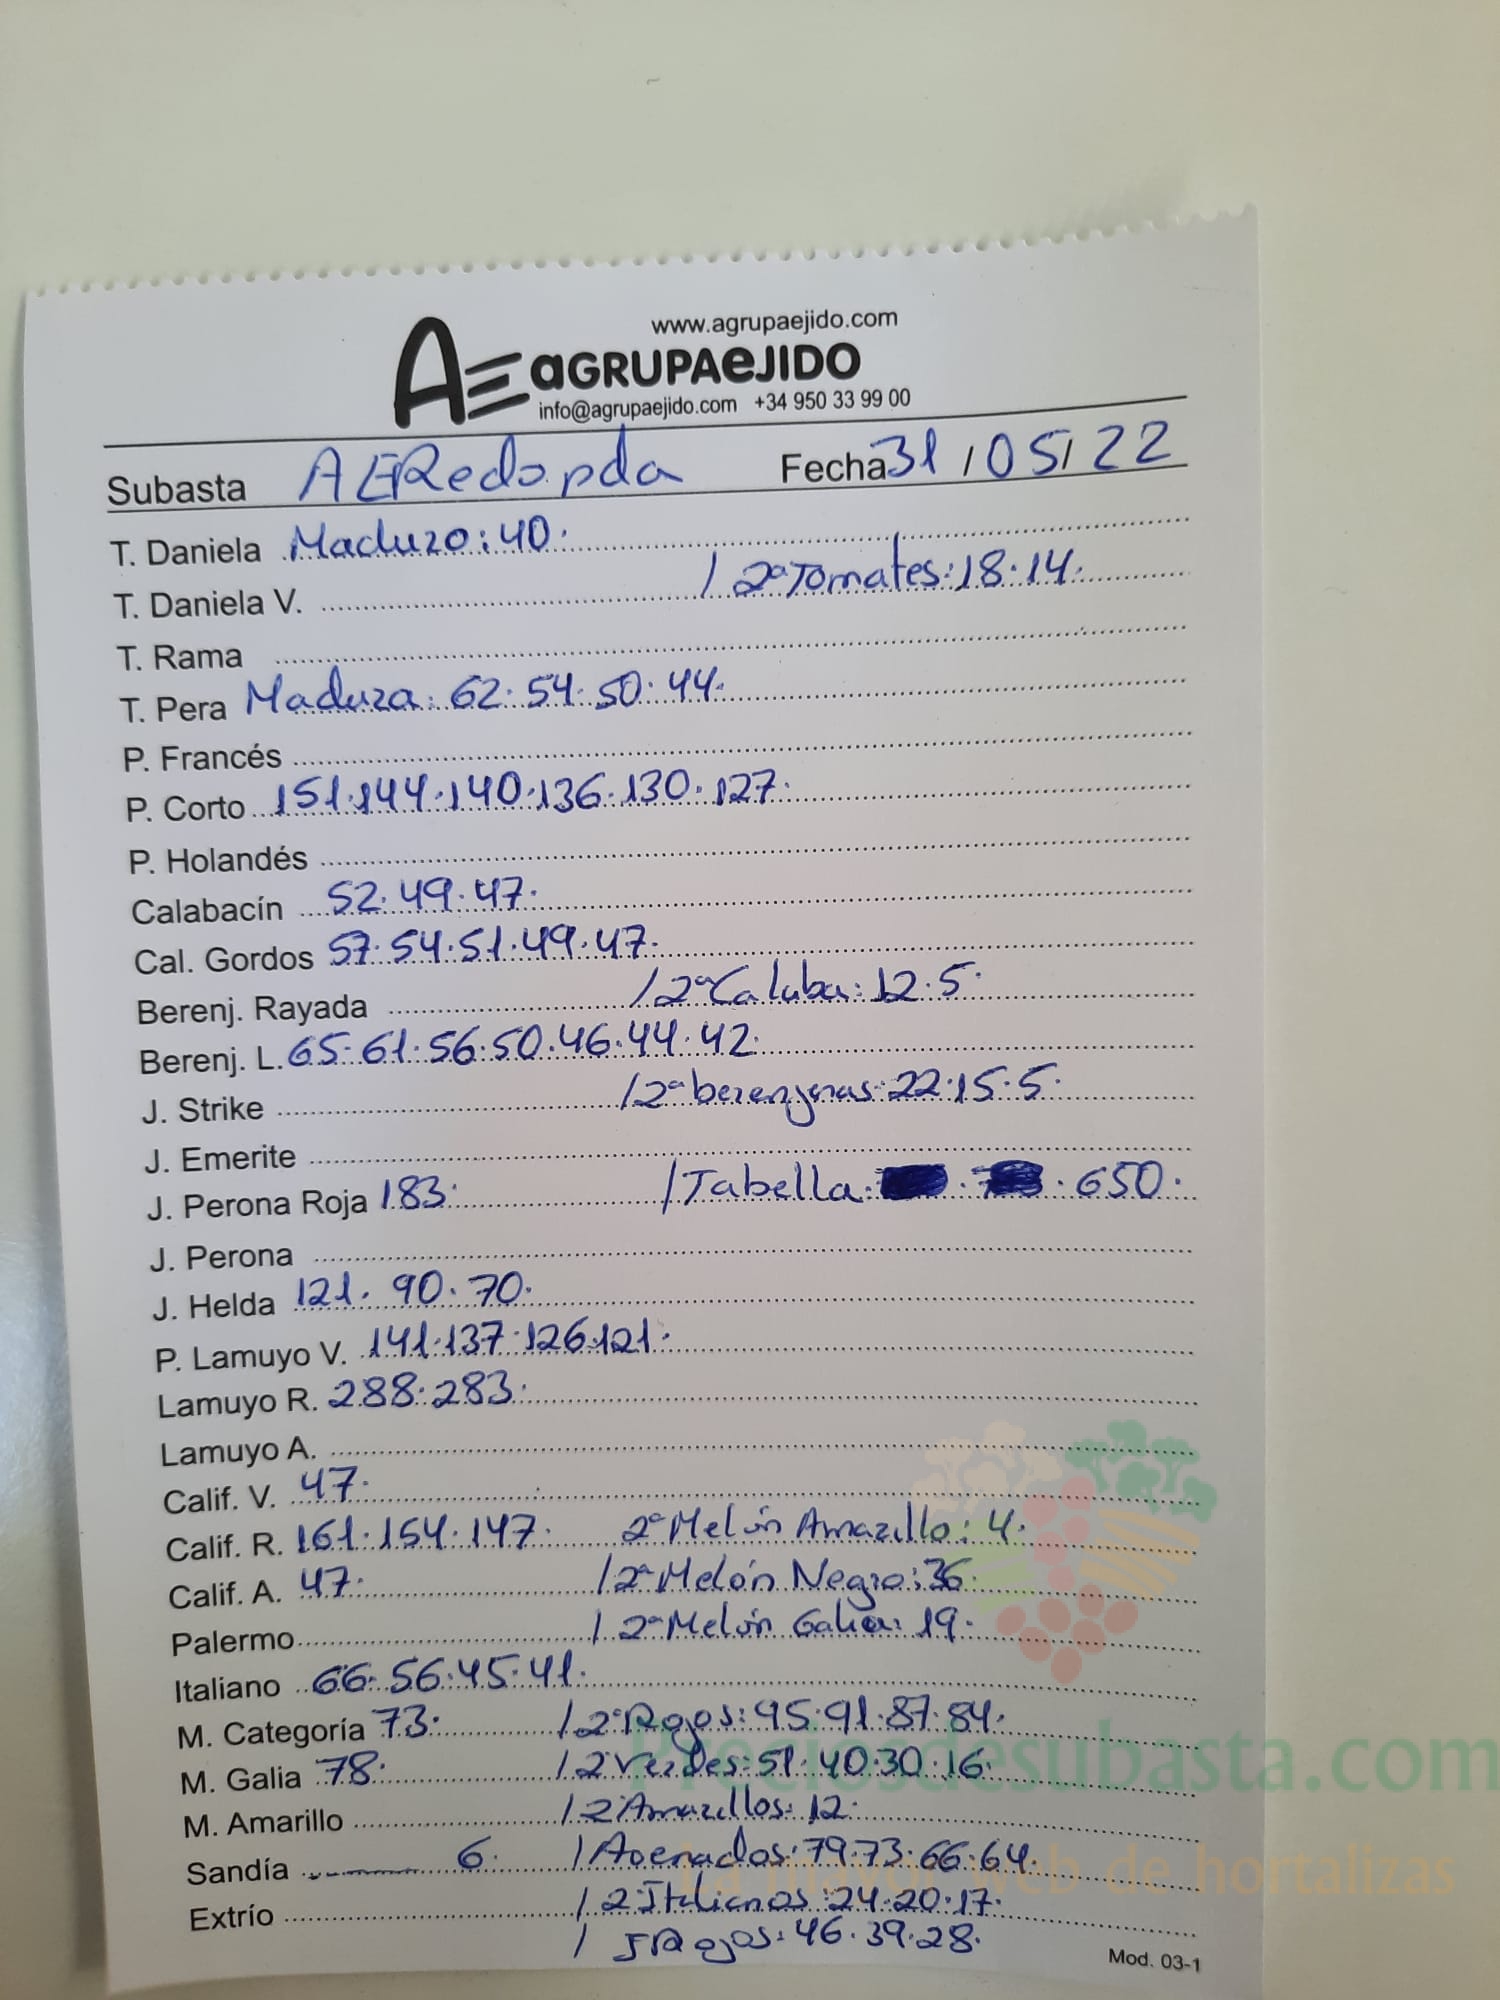 www.agrupaejido.com
AE aGRUPAeJIDO
info@agrupaejido.com +34 950 33 99 00
Subasta AERedonda Fecha 31/05/22
T. Daniela Maduro: 40.
T. Daniela V. / 2ª Tomates: 18. 14.
T. Rama
T. Pera Madura: 62. 54. 50. 44.
P. Francés
P. Corto 151. 144. 140. 136. 130. 127.
P. Holandés
Calabacín 52. 49. 47.
Cal. Gordos 57. 54. 51. 49. 47.
Berenj. Rayada / 2ª Calaba: 12. 5.
Berenj. L. 65. 61. 56. 50. 46. 44. 42.
J. Strike / 2ª berenjenas: 22. 15. 5.
J. Emerite
J. Perona Roja 183. / Tabella: 650.
J. Perona
J. Helda 121. 90. 70.
P. Lamuyo V. 141. 137. 126. 121.
Lamuyo R. 288. 283.
Lamuyo A.
Calif. V. 47.
Calif. R. 161. 154. 147. 2ª Melón Amarillo: 4.
Calif. A. 47. / 2ª Melón Negro: 36.
Palermo / 2ª Melón Galia: 19.
Italiano 66. 56. 45. 41.
M. Categoría 73. / 2ª Rojos: 95. 91. 87. 84.
M. Galia 78. / 2 Verdes: 51. 40. 30. 16.
Preciosdesubasta.com
M. Amarillo / 2 Amarillos: 12.
Sandía 6. / Asenados: 79. 73. 66. 64.
La mayor web de hortalizas
Extrío / 2 Italianos: 24. 20. 17.
/ IRojos: 46. 39. 28.
Mod. 03-1